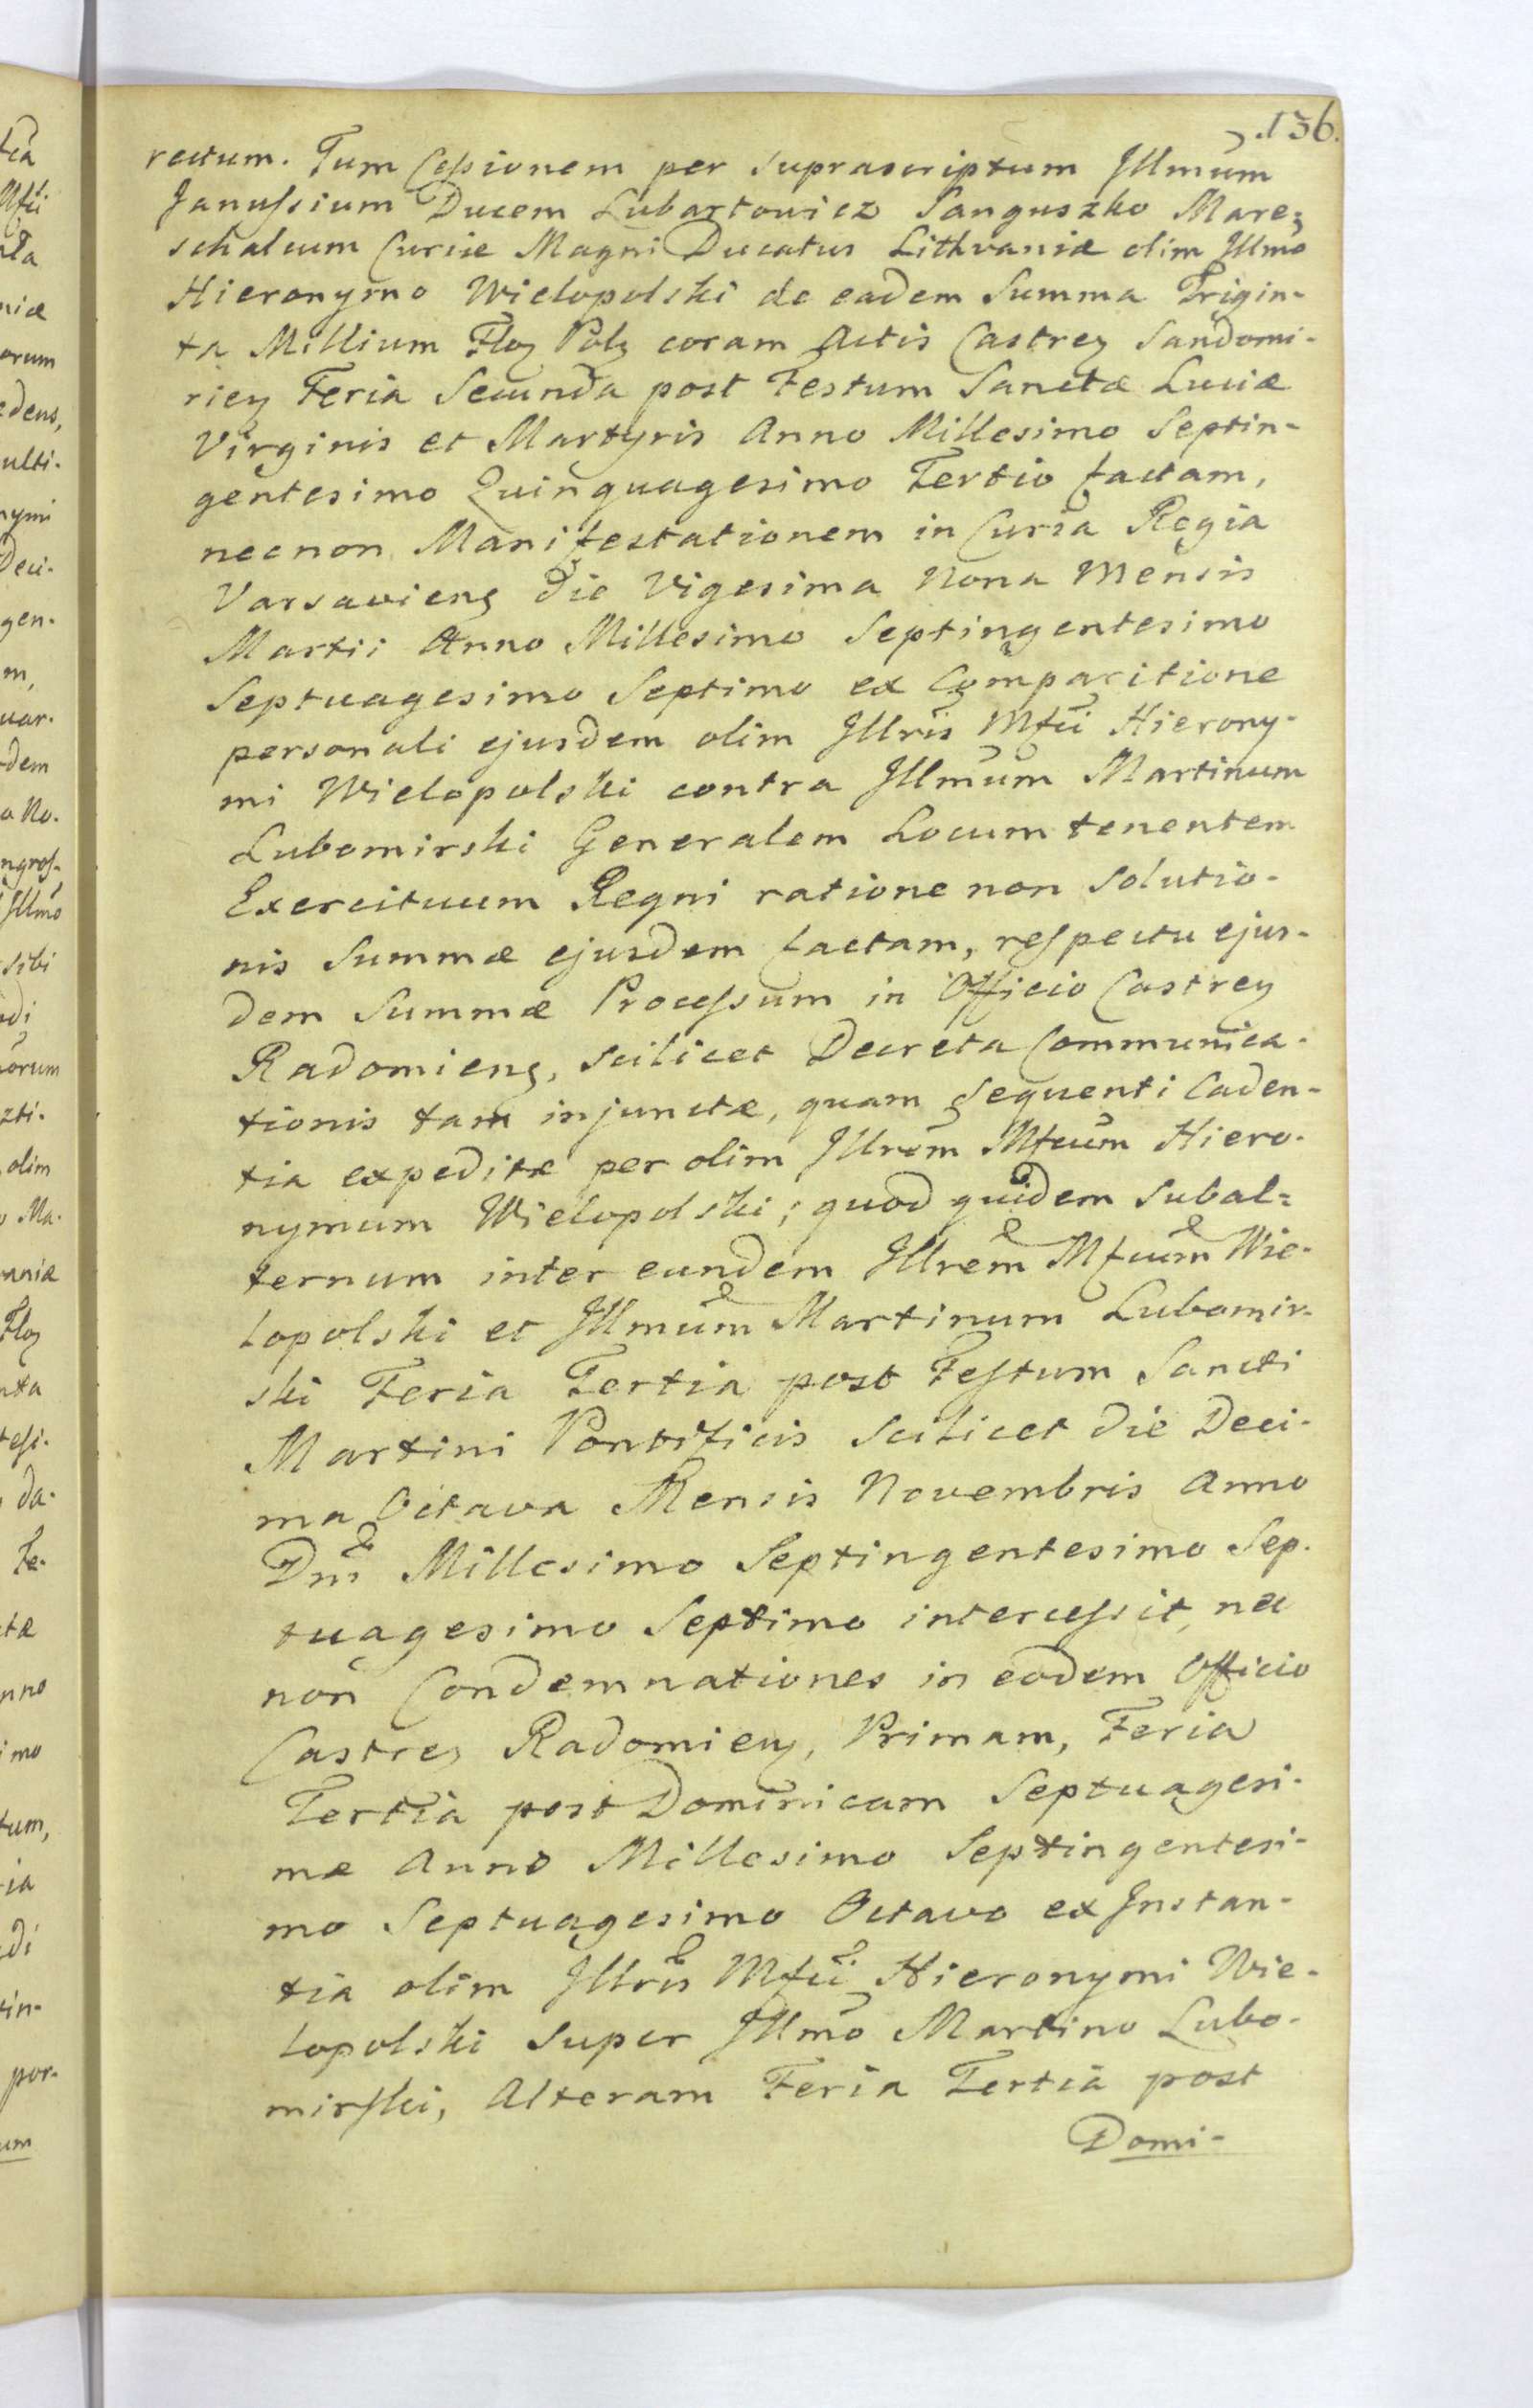 136.
rectum. Tum Cessionem per suprascriptum Jllmum
Janussium Ducem Lubartowicz Sanguszko Mare=
schalcum Curiæ Magni Ducatus Lithvaniæ olim Jllmo
Hieronymo Wielopolski de eadem Summa Trigin-
ta Millium Floz Polz coram Actis Castrez Sandomi-
riez Feria Secunda post Festum Sanctæ Luciæ
Virginis et Martyris Anno Millesimo Septin-
gentesimo Quinquagesimo Tertio factam,
necnon Manifestationem in Curia Regia
Varsaviens die Vigesima Nona Mensis
Martii Anno Millesimo Septingentesimo
Septuagesimo Septimo ex Comparitione
personali ejusdem olim Jllris Mfci Hierony-
mi Wielopolski contra Jllmum Martinum
Lubomirski Generalem Locum tenentem
Exercituum Regni ratione non solutio-
nis Summæ ejusdem factam, respectu ejus-
dem Summæ Processum in Officio Castrez
Radomiens, scilicet Decreta Communica-
tionis tam injunctæ, quam sequenti Caden-
tia expeditæ per olim Jllrem Mfcum Hiero-
nymum Wielopolski; quod quidem Subal=
ternum inter eundem Jllrem Mfcum Wie-
lopolski et Jllmum Martinum Lubomir-
ski Feria Tertia post Festum Sancti
Martini Pontificis scilicet die Deci-
ma Octava Mensis Novembris Anno
Dni Millesimo Septingentesimo Sep-
tuagesimo Septimo intercessit, nec
non Condemnationes in eodem Officio
Castrez Radomienz, Primam, Feria
Tertia post Dominicam Septuagesi-
mæ Anno Millesimo Septingentesi-
mo Septuagesimo Octavo ex Jnstan-
tia olim Jllris Mfci Hieronymi Wie-
lopolski super Jllmo Martino Lubo-
mirski, Alteram Feria Tertia post
Domi-